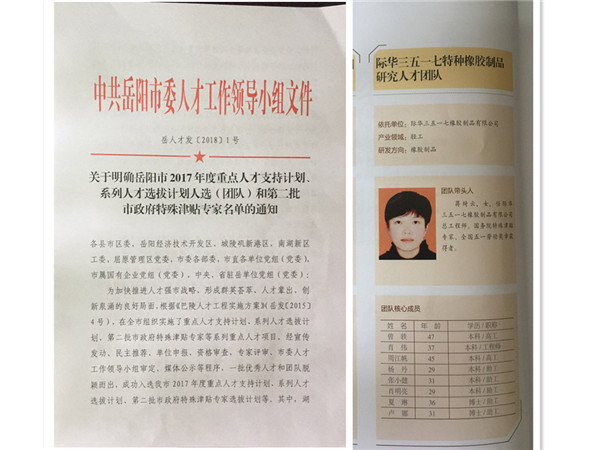 中共岳阳市委人才工作领导小组文件
岳人才发〔2018〕1号
关于明确岳阳市2017年度重点人才支持计划、
系列人才选拔计划人选（团队）和第二批
市政府特殊津贴专家名单的通知
各县市区委，岳阳经济技术开发区、城陵矶新港区、南湖新区
工委，屈原管理区党委，市委各部委，市直各单位党组（党委），
市属国有企业党组（党委），中央、省驻岳单位党组（党委）：
为加快推进人才强市战略，形成群英荟萃、人才辈出、创
新泉涌的良好局面，根据《巴陵人才工程实施方案》（岳发〔2015〕
4号），在全市组织实施了重点人才支持计划、系列人才选拔计
划、第二批市政府特殊津贴专家等系列重点人才项目。经宣传
发动、民主推荐、单位申报、资格审查、专家评审、市委人才
工作领导小组审定、媒体公示等程序，一批优秀人才和团队脱
颖而出，成功入选我市2017年度重点人才支持计划、系列人才
选拔计划、第二批市政府特殊津贴专家选拔计划等。其中，湖
际华三五一七特种橡胶制品
研究人才团队
依托单位：际华三五一七橡胶制品有限公司
产业领域：轻工
研发方向：橡胶制品
团队带头人
女，任际华
三五一七橡胶制品有限公司
总工程师，国务院特殊津贴
专家、全国五一劳动奖章获
得者。
团队核心成员
姓 名 年 龄 学历/职称
曾 轶 47 本科/高工
肖 伟 37 本科/工程师
周江帆 45 本科/高工
杨 丹 29 本科/助工
张小健 31 本科/助工
肖明亮 29 本科/助工
夏 琳 36 博士/助工
卢 娜 31 博士/助工